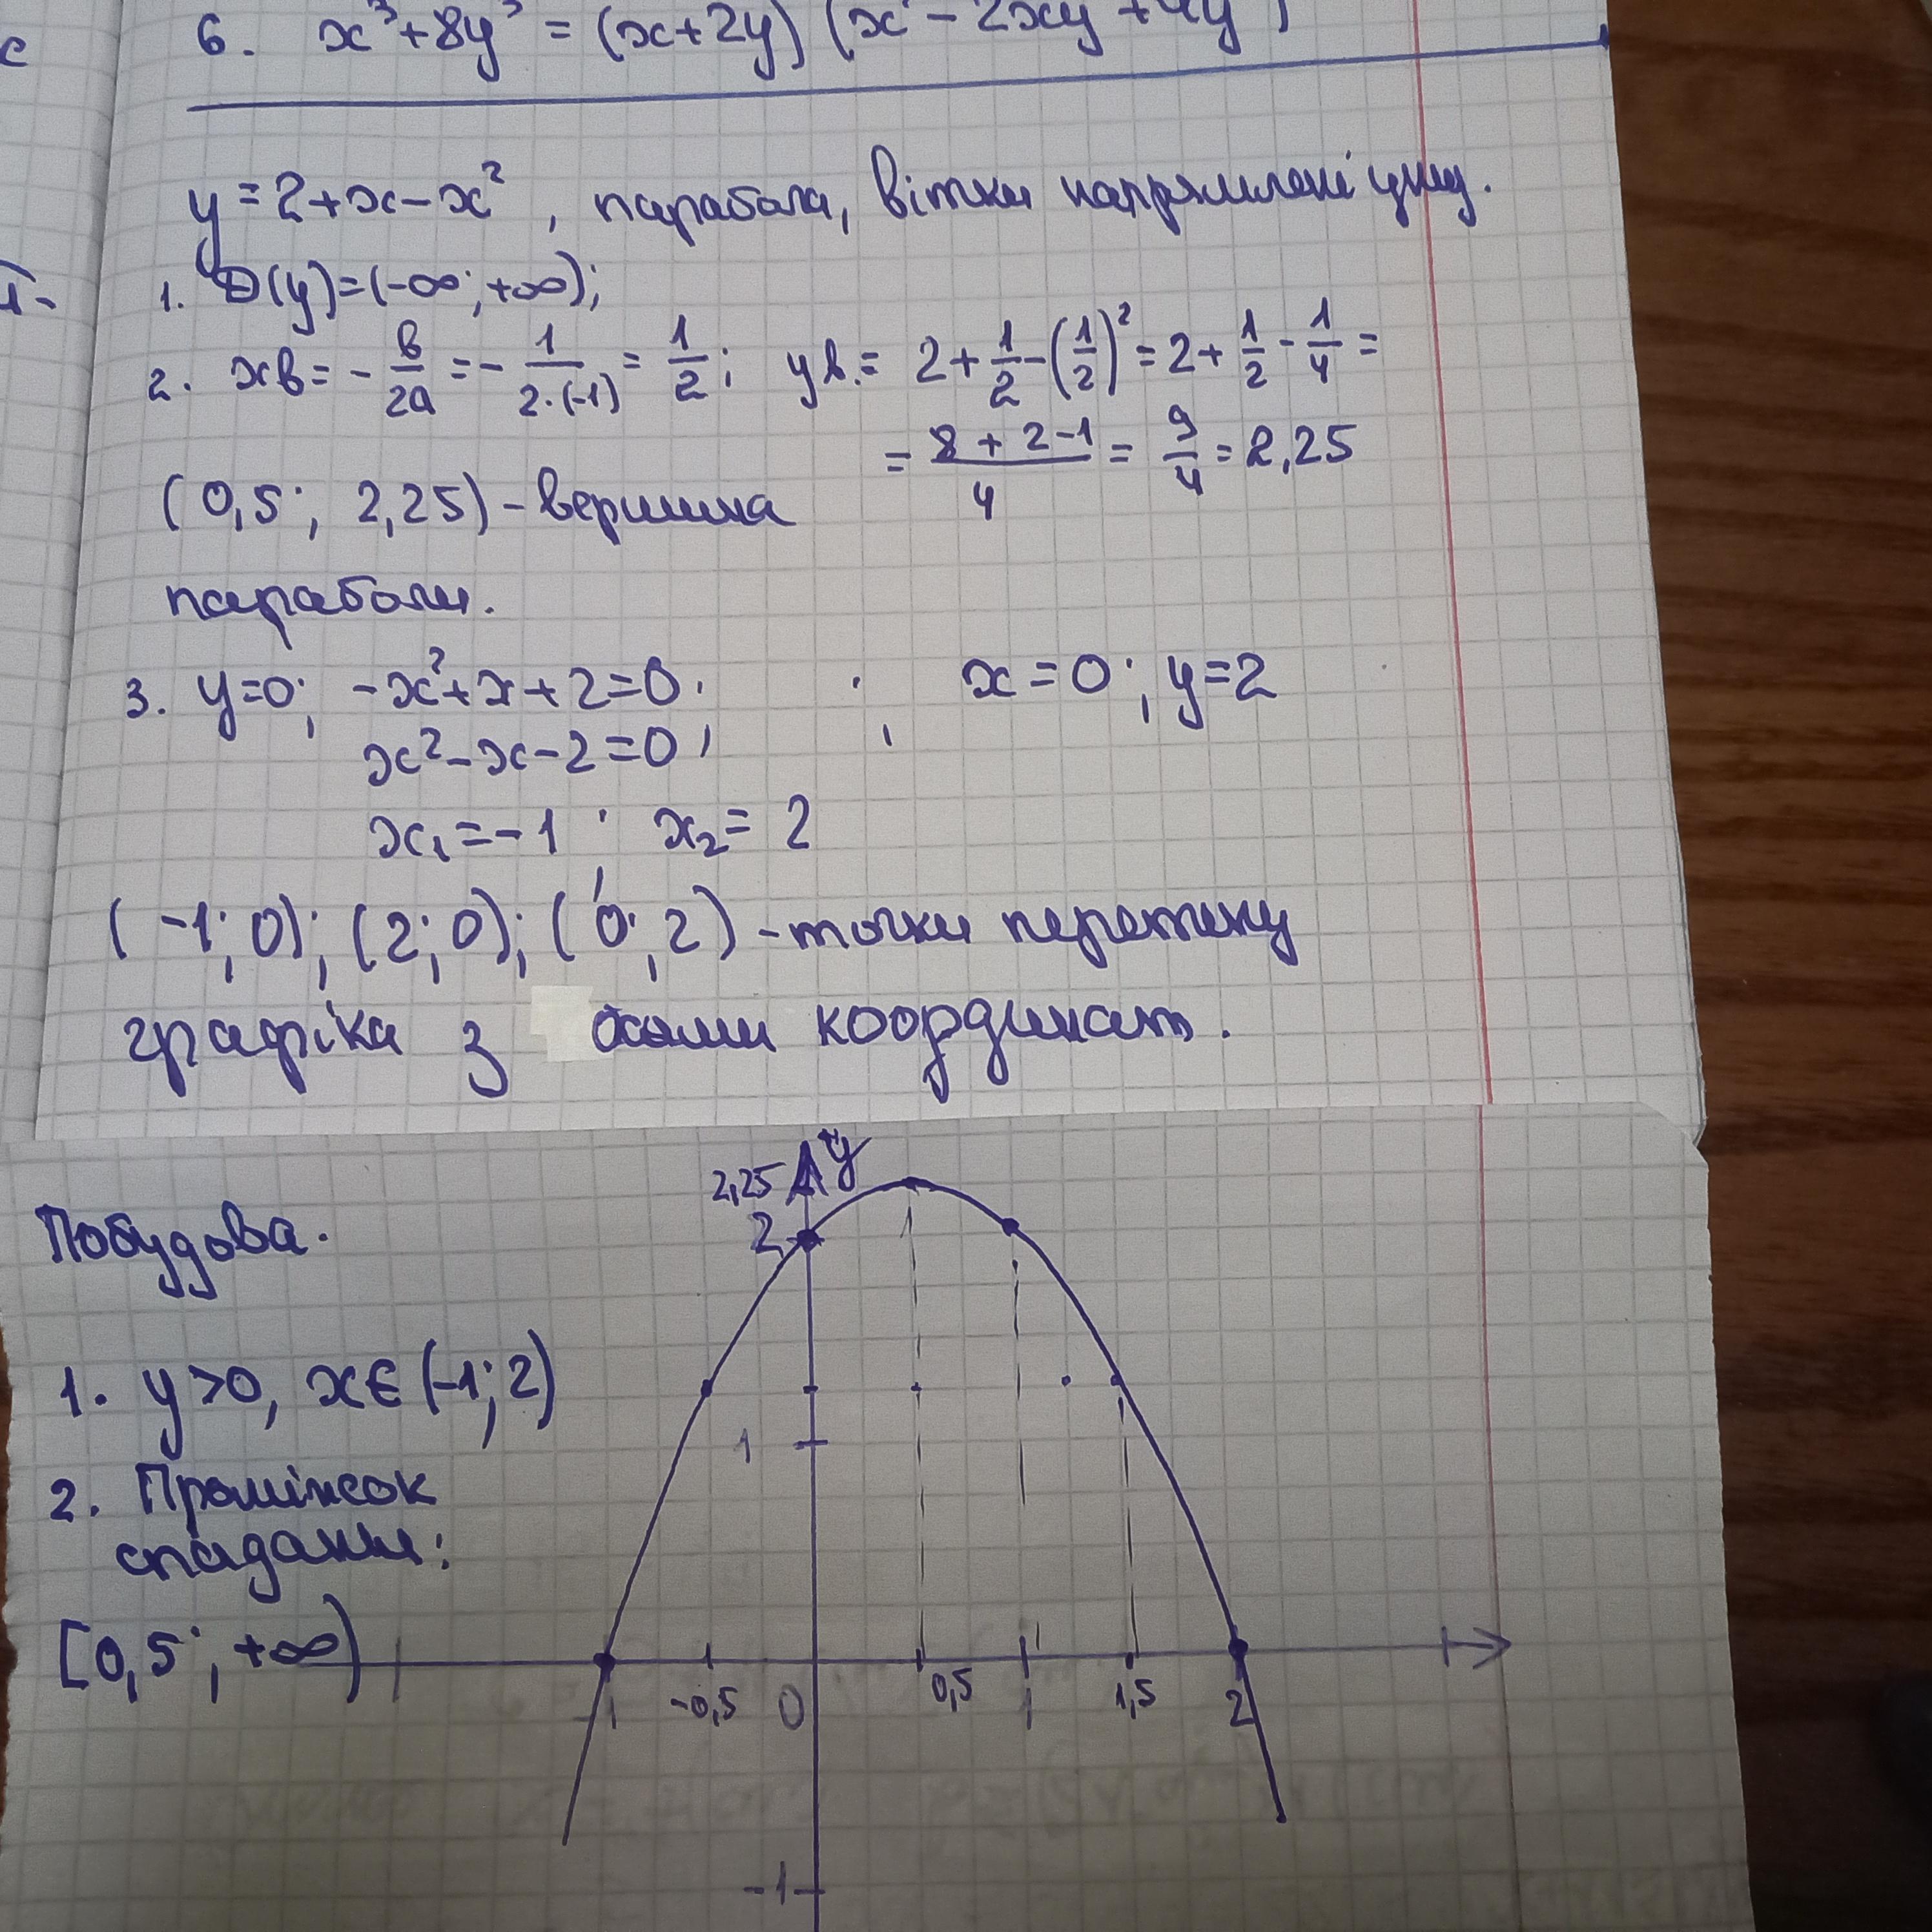 6. x³+8y³ = (x+2y)(x²-2xy+4y²)
y=2+x-x², парабола, вітки напрямлені униз.
1. D(y)=(-∞;+∞);
2. xв = -в/2a = -1/2·(-1) = 1/2; yв.= 2+1/2-(1/2)²=2+1/2-1/4=
= 8+2-1/4 = 9/4 = 2,25
(0,5; 2,25) - вершина
параболи.
3. y=0; -x²+x+2=0; ; x=0; y=2
x²-x-2=0;
x₁=-1; x₂=2
(-1;0); (2;0); (0;2) - точки перетину
графіка з осями координат.
Побудова.
1. y>0, x∈(-1;2)
2. Проміжок
спадання:
[0,5; +∞)
y
2,25
2
1
-1 -0,5 0 0,5 1 1,5 2
-1